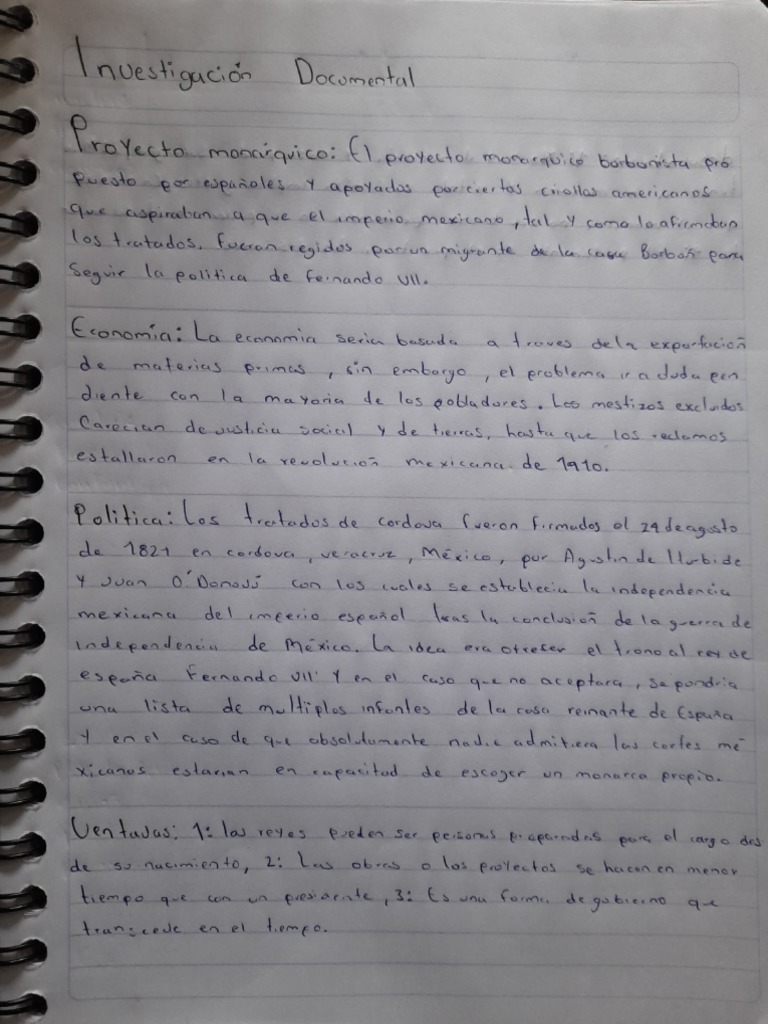 Investigación Documental
Proyecto monárquico: El proyecto monarquico borbonista pro
puesto por españoles y apoyados por ciertos criollos americanos
que aspiraban a que el imperio mexicano, tal y como lo afirmaban
los tratados. fueran regidos por un migrante de la casa Borbón para
Seguir la politica de Fernando VII.
Economía: La economia seria basada a traves de la exportación
de materias primas, sin embargo, el problema
diente con la mayoria de los pobladores. Los mestizos excluidos
Carecian de justicia social y de tierras, hasta que los reclamos
estallaron en la revolución mexicana de 1910.
Politica: Los tratados de cordova fueron firmados el 24 de agosto
de 1821 en cordova, veracruz, México, por Agustin de Iturbide
y Juan O'Donojú con los cuales se establecia la independencia
mexicana del imperio español tras la conclusión de la guerra de
independencia de México. La idea era ofreser el trono al rey de
españa Fernando VII y en el caso que no aceptara, se pondria
una lista de multiplos infantes de la casa reinante de España
y en el caso de que absolutamente nadie admitiera las cortes me
xicanas estarian en capacitud de escoger un monarca propio.
Ventajas: 1: los reyes pueden ser personas preparadas para el cargo des
de su nacimiento, 2: Las obras o los proyectos se hacen en menor
tiempo que con un presidente, 3: Es una forma de gobierno que
transcede en el tiempo.